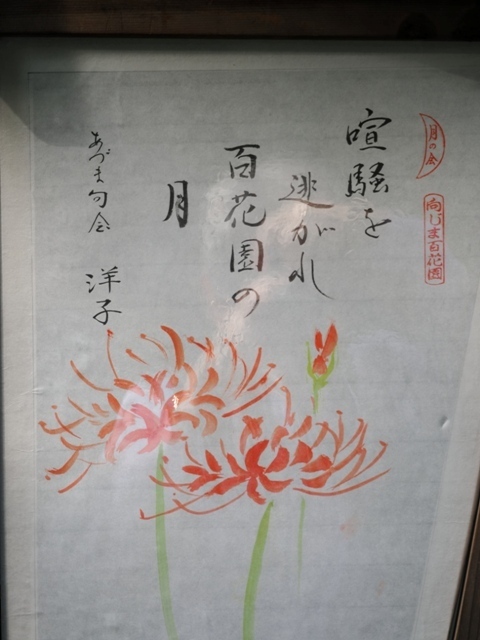 月の会
向じま百花園
喧騒を
逃がれ
百花園の
月
あづま句会 洋子